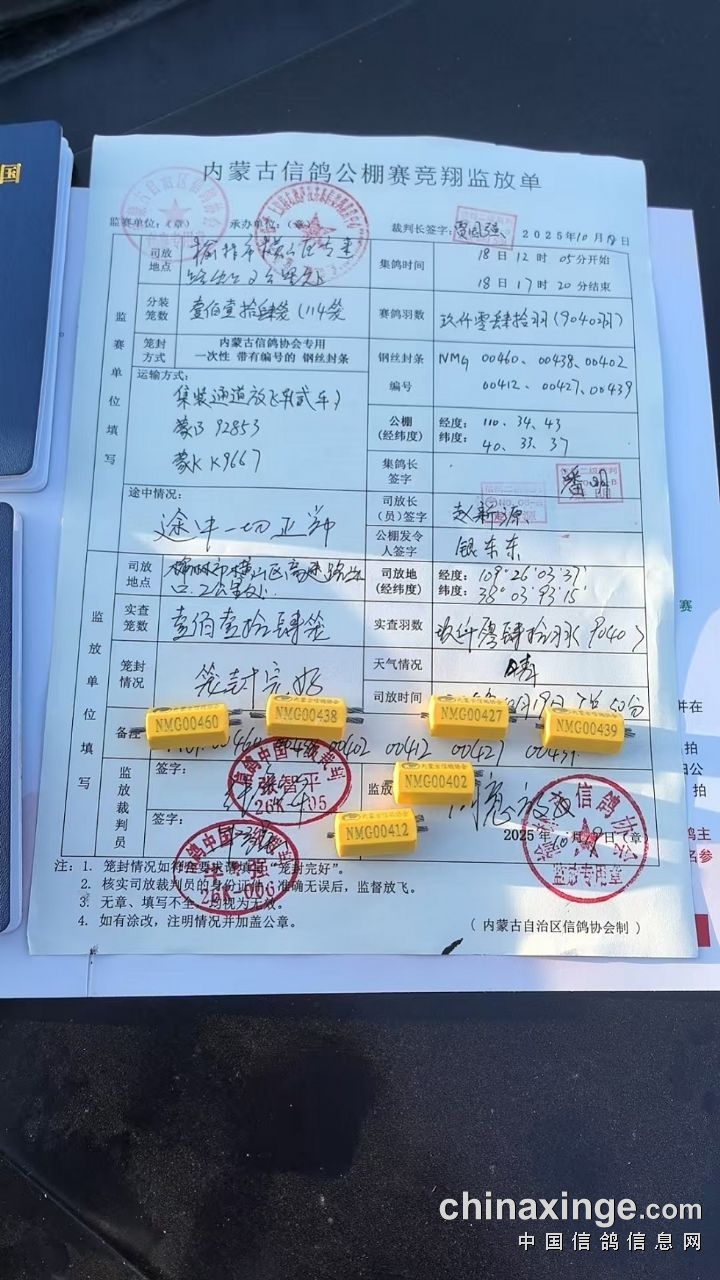 国
内蒙古信鸽公棚赛竞翔监放单
监赛单位：（章） 承办单位：（章） 裁判长签字：贾国强 2025年10月18日
监赛单位填写
司放地点 榆林市横山区高速路出口2公里处
集鸽时间 18日12时05分开始
18日17时20分结束
分装笼数 壹佰壹拾肆笼（114笼）
赛鸽羽数 玖仟零肆拾羽（9040羽）
笼封方式 内蒙古信鸽协会专用
一次性 带有编号的 钢丝封条
钢丝封条编号 NMG 00460、00438、00402
00412、00427、00439
运输方式：
集装通道放飞车（贰车）
蒙B 92853
蒙K K9667
公棚（经纬度） 经度：110.34.43
纬度：40.33.37
集鸽长签字 潘明
途中情况：
途中一切正常
司放长（员）签字 赵新源
公棚发令人签字 银东东
监放单位填写
司放地点 榆林市横山区高速路出口2公里处
司放地（经纬度） 经度：109°26′03.37″
纬度：38°03′93.15″
实查笼数 壹佰壹拾肆笼
实查羽数 玖仟零肆拾羽（9040）
笼封情况 笼封完好
天气情况 晴
司放时间
备注
00402 00412 00427 00439
NMG00460
NMG00438
NMG00427
NMG00439
NMG00402
NMG00412
监放裁判员
签字：
签字：
张智平
2025年10月19日（章）
注：1. 笼封情况如符合要求请填写“笼封完好”。
2. 核实司放裁判员的身份证件，准确无误后，监督放飞。
3. 无章、填写不全，均视为无效。
4. 如有涂改，注明情况并加盖公章。
（内蒙古自治区信鸽协会制）
chinaxinge.com
中国信鸽信息网